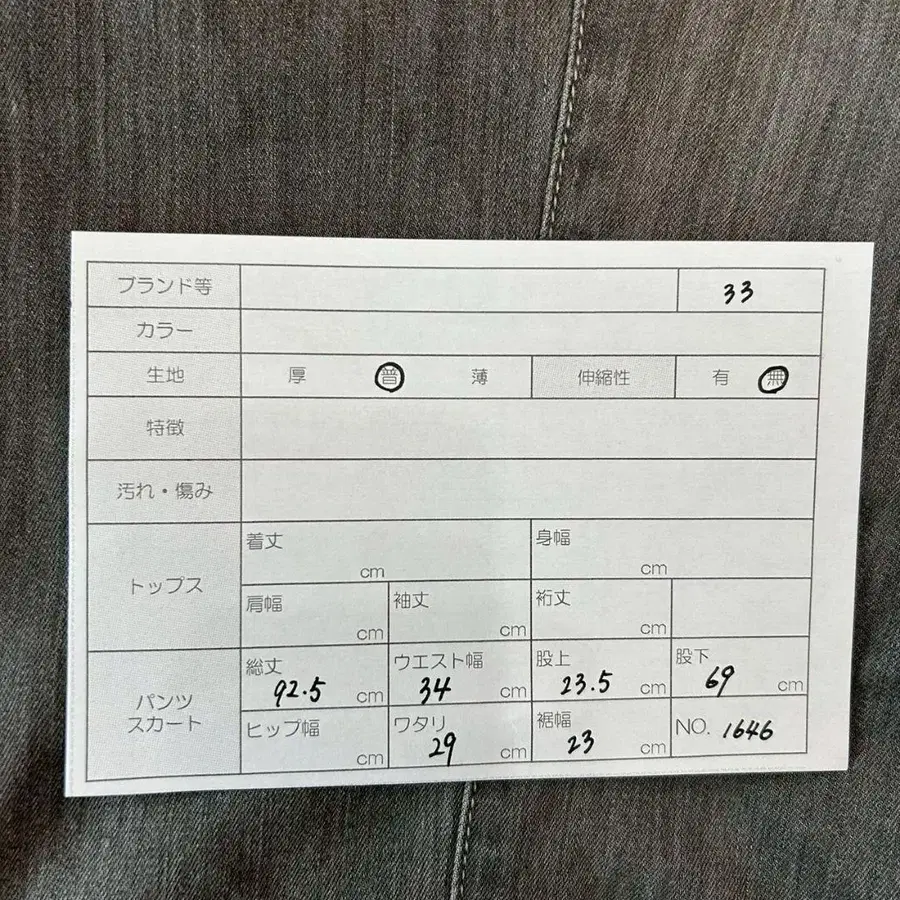 ブランド等 33
カラー
生地 厚 普 薄 伸縮性 有 無
特徴
汚れ・傷み
トップス
着丈 cm 身幅 cm
肩幅 cm 袖丈 cm 裄丈 cm
パンツ
スカート
総丈 92.5 cm ウエスト幅 34 cm 股上 23.5 cm 股下 69 cm
ヒップ幅 cm ワタリ 29 cm 裾幅 23 cm NO. 1646